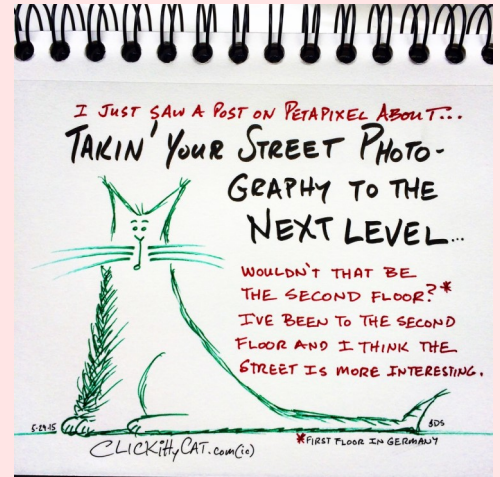 I JUST SAW A POST ON PETAPIXEL ABOUT...
TAKIN' YOUR STREET PHOTO-
GRAPHY TO THE
NEXT LEVEL...
WOULDN'T THAT BE
THE SECOND FLOOR?*
I'VE BEEN TO THE SECOND
FLOOR AND I THINK THE
STREET IS MORE INTERESTING.
5-29-15
SDS
CLICKittyCAT.com(ic)
*FIRST FLOOR IN GERMANY